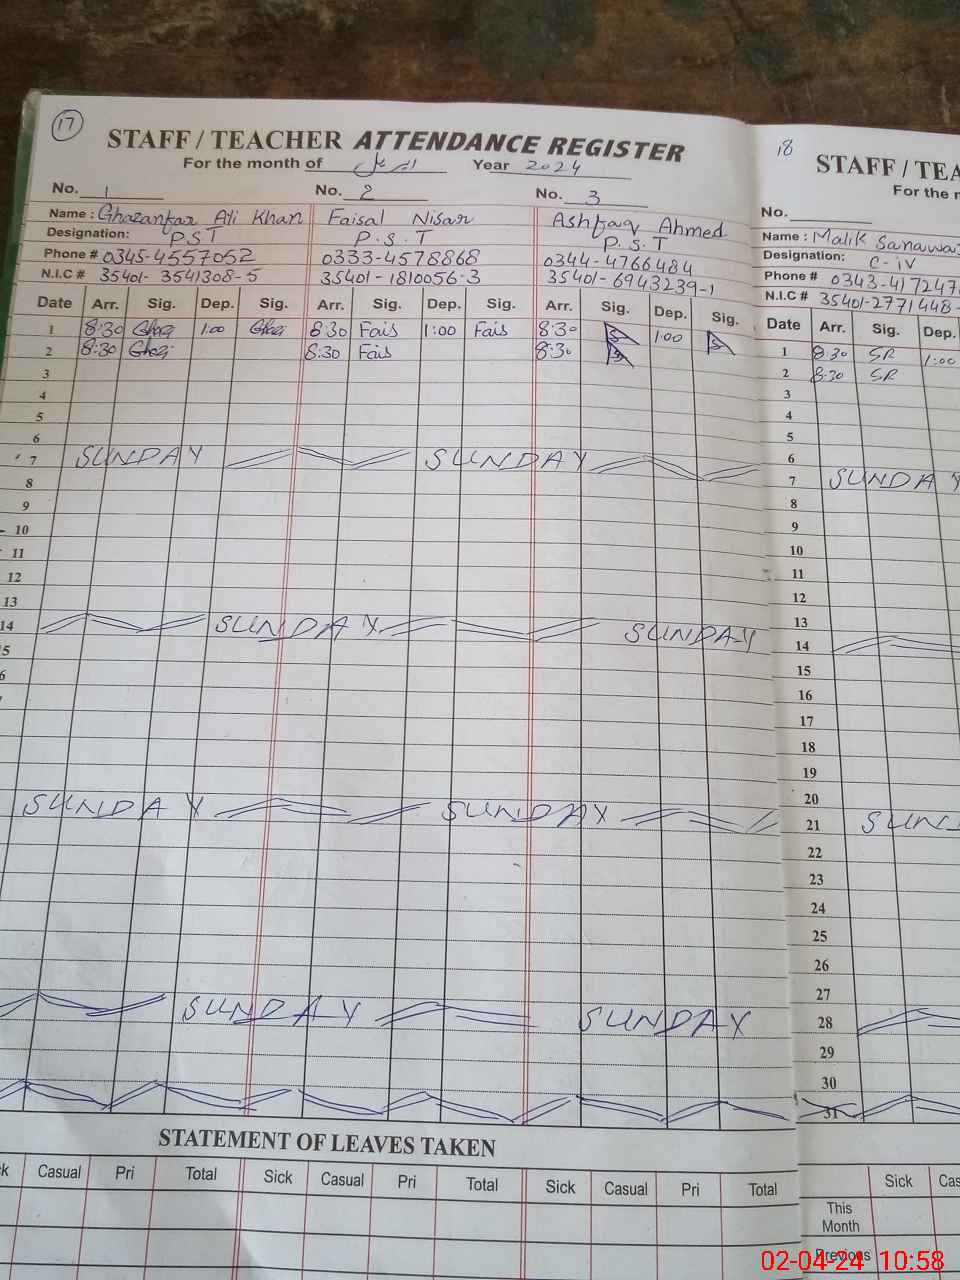 17
STAFF / TEACHER ATTENDANCE REGISTER
For the month of اپریل Year 2024
No. 1 No. 2 No. 3
Name : Ghazanfar Ali Khan Faisal Nisar Ashfaq Ahmed
Designation: PST P.S.T P.S.T
Phone # 0345-4557052 0333-4578868 0344-4766484
N.I.C # 35401-3541308-5 35401-1810056-3 35401-6943239-1
Date Arr. Sig. Dep. Sig. Arr. Sig. Dep. Sig. Arr. Sig. Dep. Sig.
1 8:30 Ghaz 1:00 Ghaz 8:30 Fais 1:00 Fais 8:30 1:00
2 8:30 Ghaz 8:30 Fais 8:30
3
4
5
6
7 SUNDAY SUNDAY
8
9
10
11
12
13
14 SUNDAY SUNDAY
5
6
SUNDAY SUNDAY
SUNDAY SUNDAY
STATEMENT OF LEAVES TAKEN
ck Casual Pri Total Sick Casual Pri Total Sick Casual Pri Total
18
STAFF / TEA
For the m
No.
Name : Malik Sanawa
Designation: C-IV
Phone # 0343-417247
N.I.C # 35401-2771448-
Date Arr. Sig. Dep.
1 8:30 SR 1:00
2 8:30 SR
3
4
5
6
7 SUNDAY
8
9
10
11
12
13
14
15
16
17
18
19
20
21 SUN
22
23
24
25
26
27
28
29
30
31
Sick Cas
This
Month
Previous
02-04-24 10:58